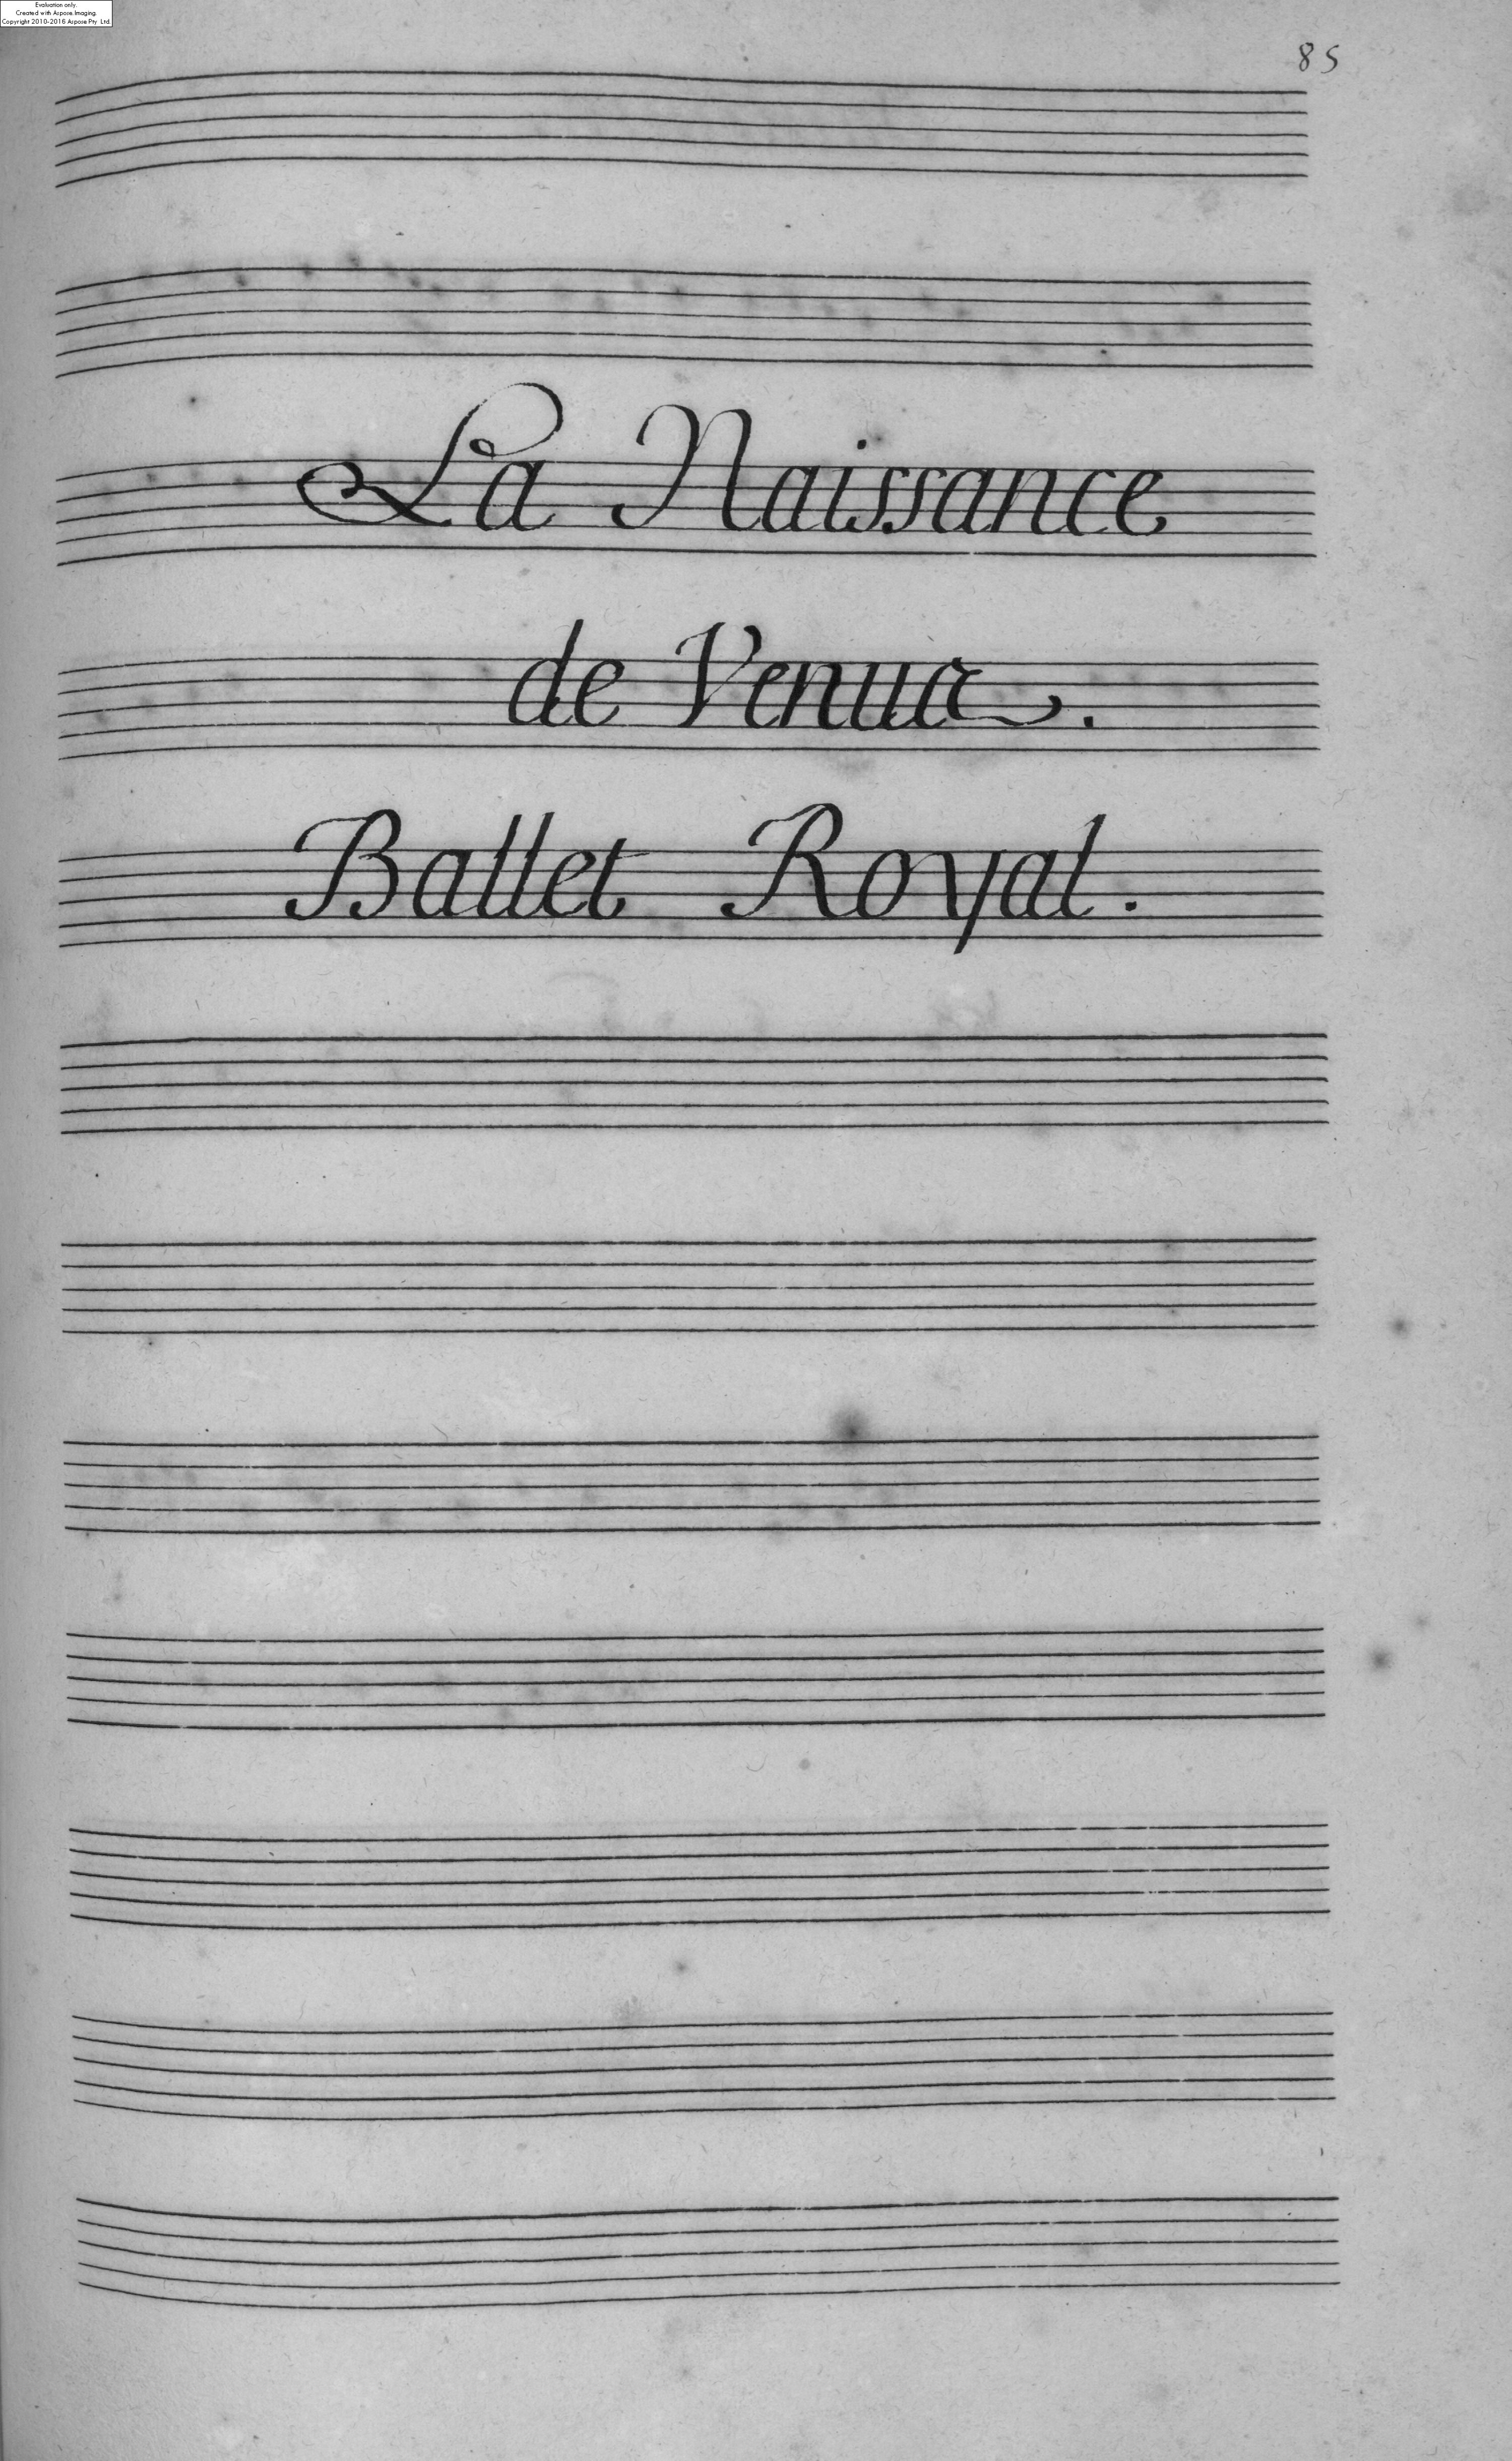 Evaluation only.
Created with Aspose.Imaging.
Copyright 2010-2016 Aspose Pty Ltd.
85
La Naissance
de Venus.
Ballet Royal.